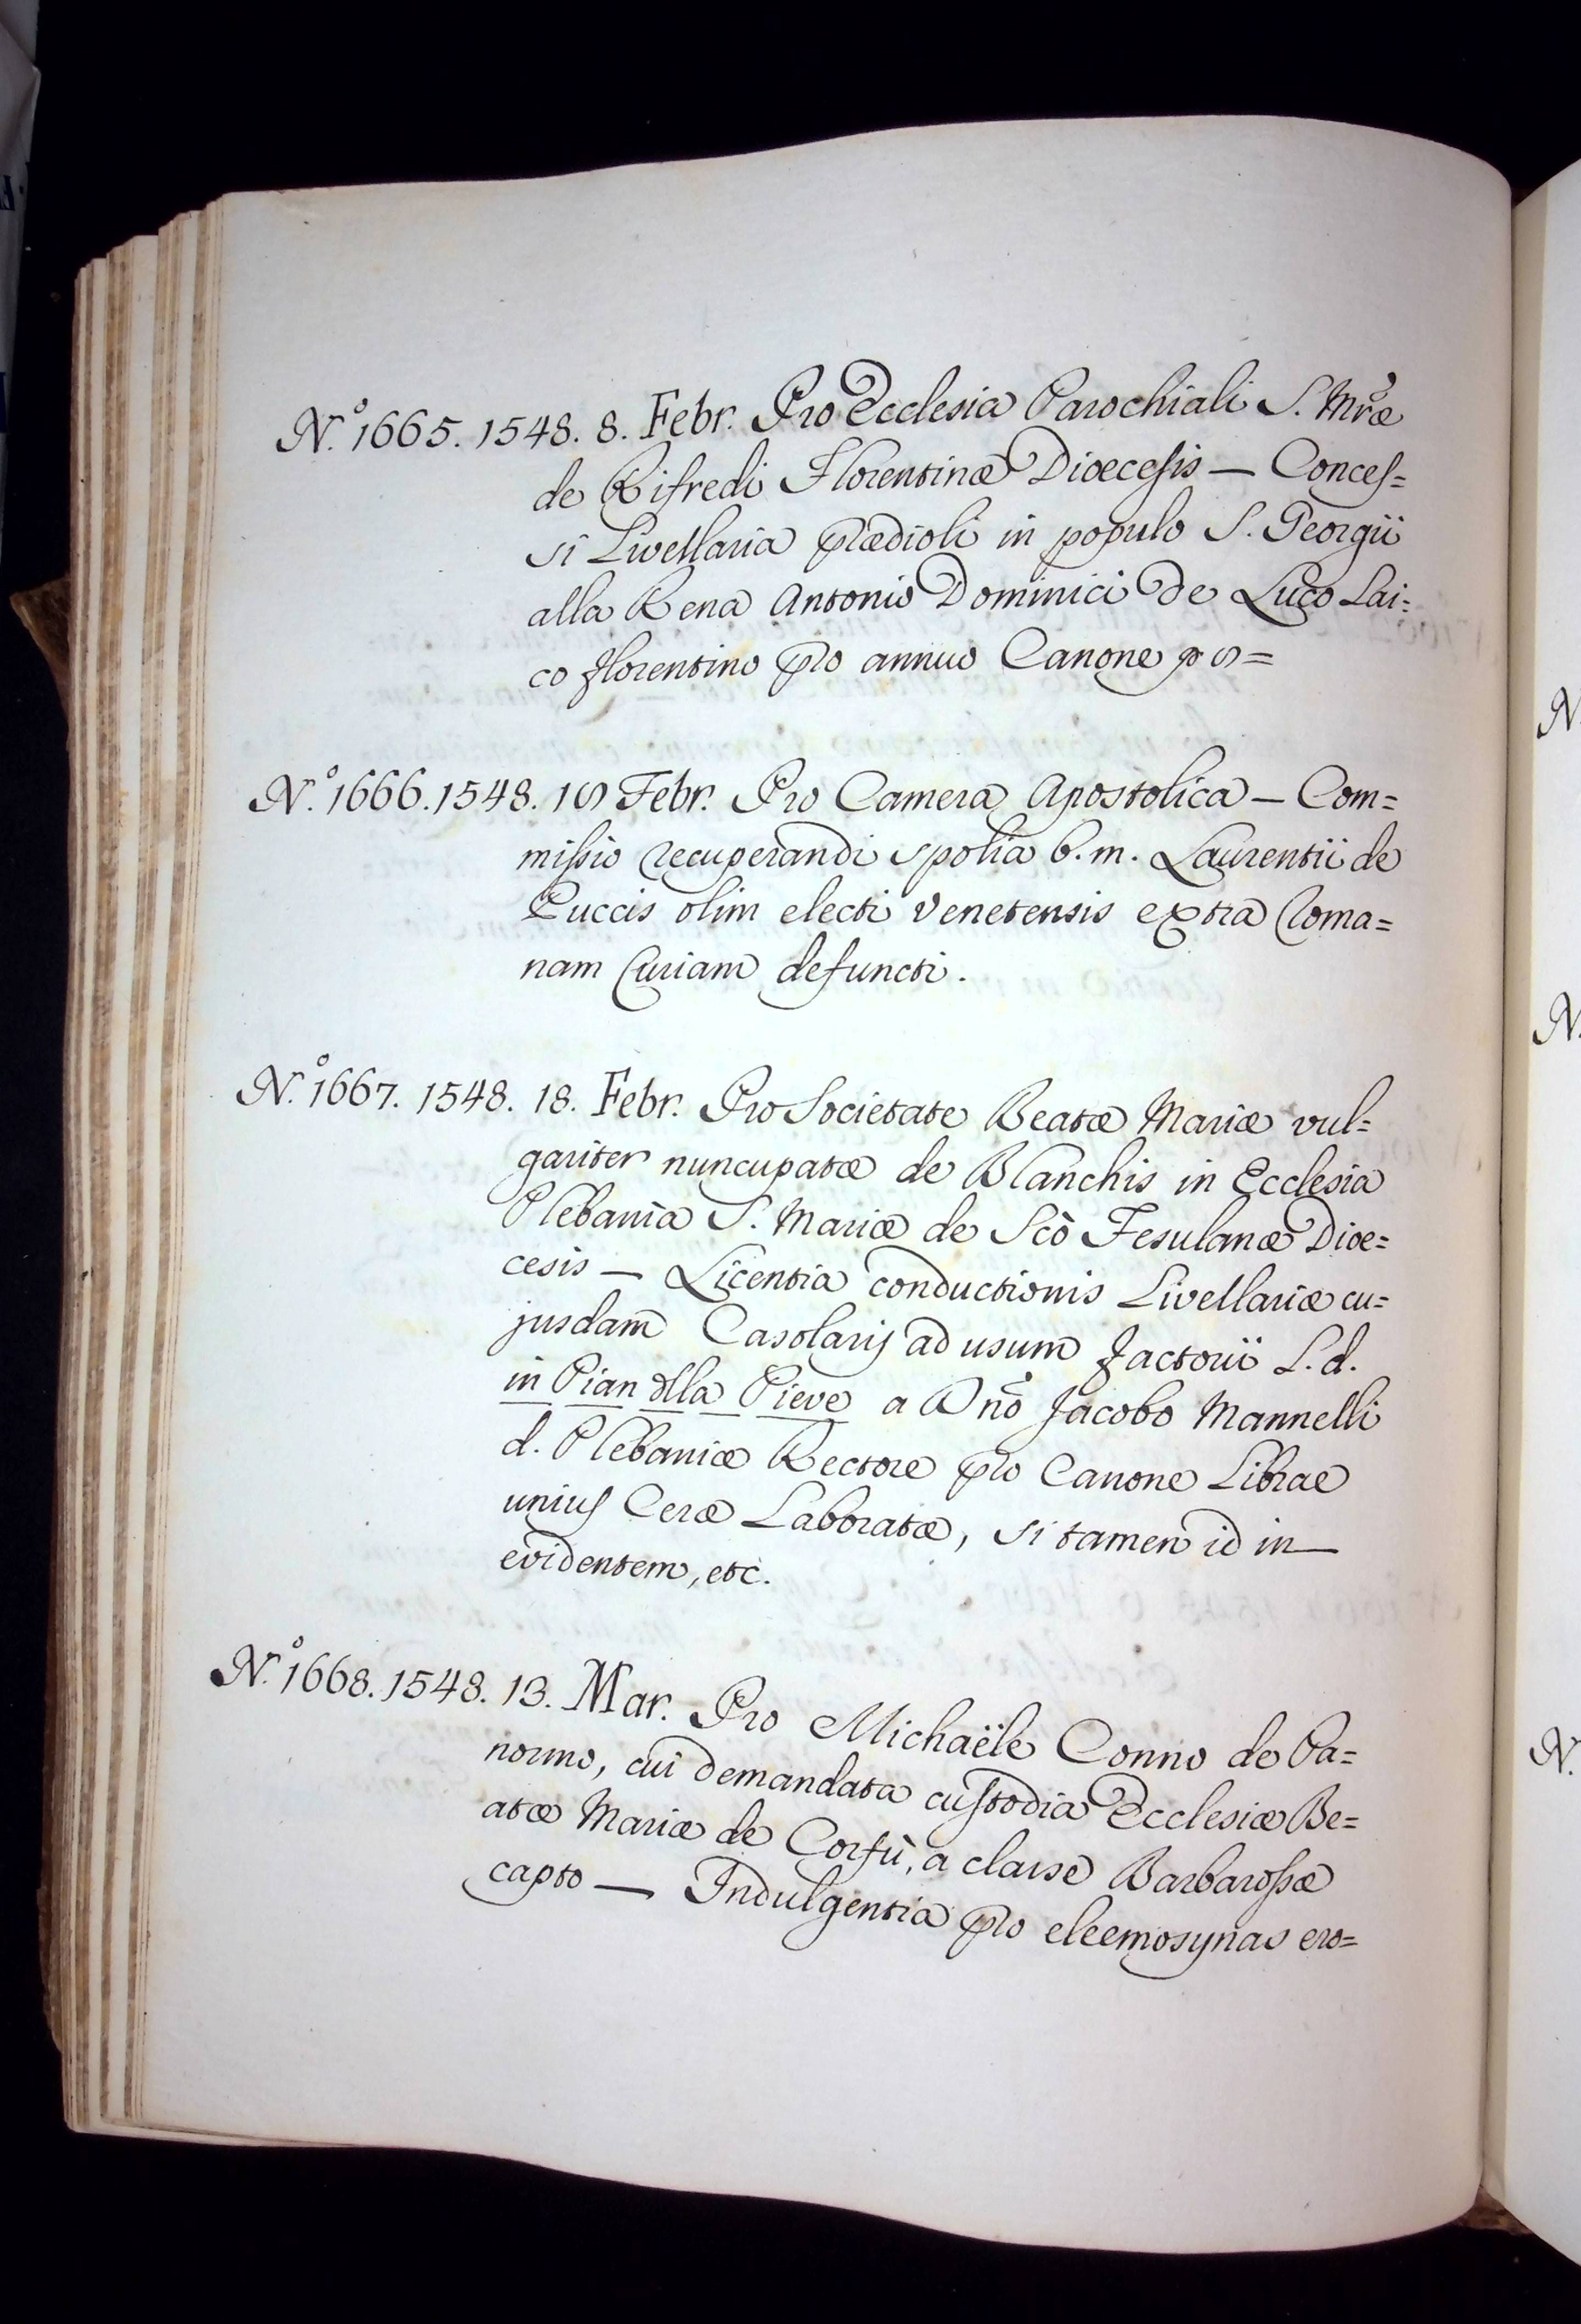 N.º 1665. 1548. 8. Febr. Pro Ecclesia Parochiali S. Mræ
de Rifredi Florentinæ Dioecesis — Conces=
si Livellaria prædioli in populo S. Georgii
alla Rena Antonio Dominici de Luco Lai=
co florentino pro annuo Canone
N.º 1666. 1548. Febr. Pro Camera Apostolica — Com=
missio recuperandi spolia b. m. Laurentii de
Puccis olim electi Venetensis extra Roma=
nam Curiam defuncti.
N.º 1667. 1548. 18. Febr. Pro Societate Beatæ Mariæ vul=
gariter nuncupatæ de Blanchis in Ecclesia
Plebania S. Mariæ de Scò Fesulanæ Dioe=
cesis — Licentia conductionis Livellariæ cu=
jusdam Casolarij ad usum factorii S. d.
in Pian dlla Pieve a Dnõ Jacobo Mannelli
d. Plebaniæ Rectore pro Canone Librae
unius Ceræ Laboratæ, si tamen id in—
evidentem, etc.
N.º 1668. 1548. 13. Mar. Pro Michaële Conno de Pa=
normo, cui demandata custodia Ecclesiæ Be=
atæ Mariæ de Corfù, a classe Barbarossæ
capto — Indulgentia pro eleemosynas ero=
N.
N.
N.